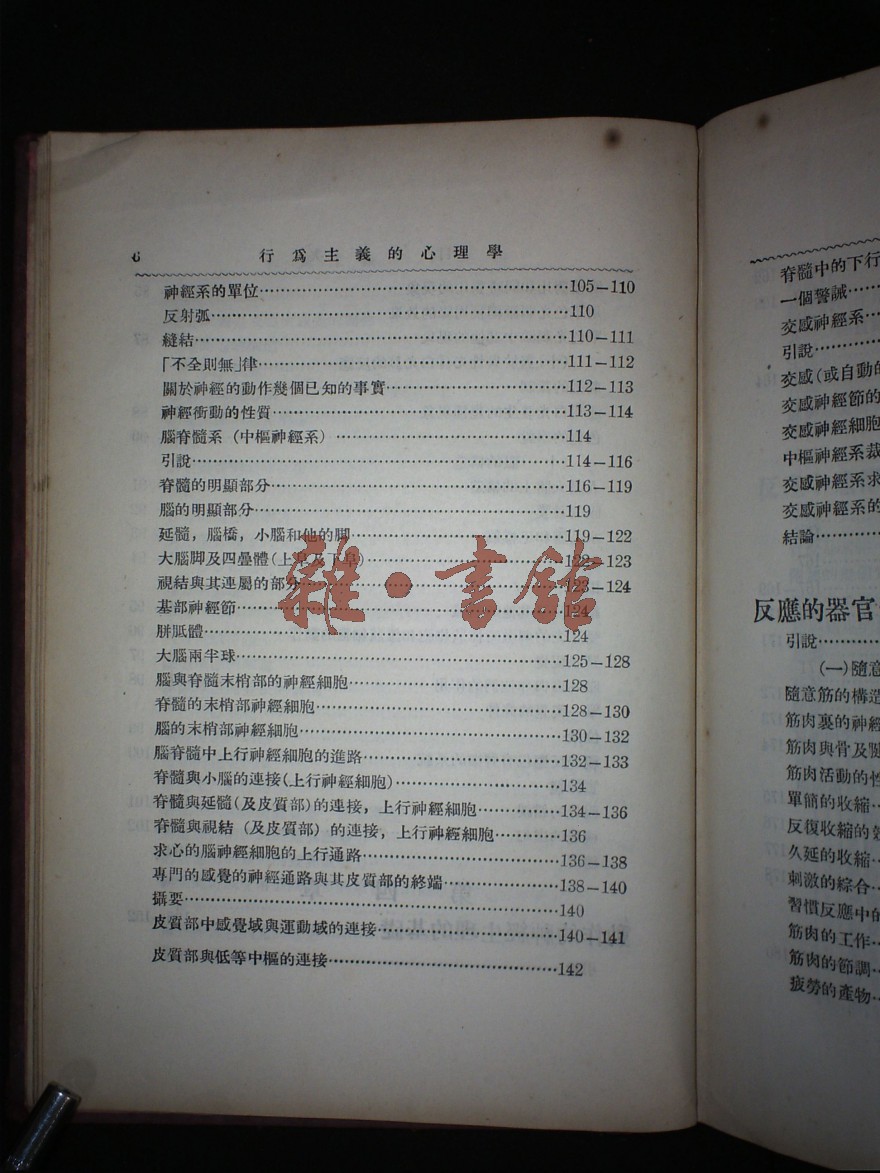 6 行爲主義的心理學
神經系的單位……105—110
反射弧……110
縫結……110—111
「不全則無」律……111—112
關於神經的動作幾個已知的事實……112—113
神經衝動的性質……113—114
腦脊髓系(中樞神經系)……114
引說……114—116
脊髓的明顯部分……116—119
腦的明顯部分……119
延髓，腦橋，小腦和他的脚……119—122
大腦脚及四疊體(上皐及下皐)……122—123
視結與其連屬的部分……123—124
基部神經節……124
胼胝體……124
大腦兩半球……125—128
腦與脊髓末梢部的神經細胞……128
脊髓的末梢部神經細胞……128—130
腦的末梢部神經細胞……130—132
腦脊髓中上行神經細胞的進路……132—133
脊髓與小腦的連接(上行神經細胞)……134
脊髓與延髓(及皮質部)的連接，上行神經細胞……134—136
脊髓與視結(及皮質部)的連接，上行神經細胞……136
求心的腦神經細胞的上行通路……136—138
專門的感覺的神經通路與其皮質部的終端……138—140
攝要……140
皮質部中感覺域與運動域的連接……140—141
皮質部與低等中樞的連接……142
雜·書館
脊髓中的下行
一個警誡……
交感神經系……
引說……
交感(或自動的
交感神經節的
交感神經細胞
中樞神經系裁
交感神經系求
交感神經系的
結論……
反應的器官
引說……
(一)隨意
隨意筋的構造
筋肉裏的神經
筋肉與骨及
筋肉活動的性
單簡的收縮……
反復收縮的效
久延的收縮……
刺激的綜合……
習慣反應中的
筋肉的工作……
筋肉的節調……
疲勞的產物……